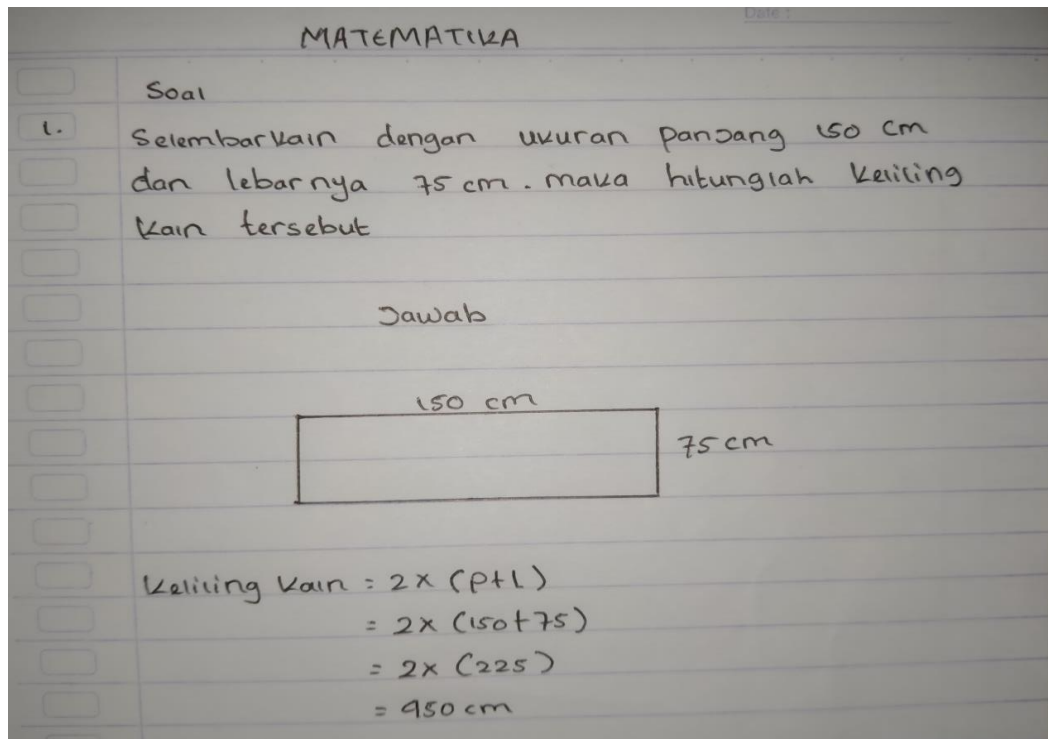 Date :
MATEMATIKA
Soal
1. Selembar kain dengan ukuran panjang 150 cm
dan lebarnya 75 cm . maka hitunglah keliling
kain tersebut
Jawab
150 cm
75 cm
Keliling kain = 2 x (p+l)
= 2 x (150+75)
= 2 x (225)
= 450 cm